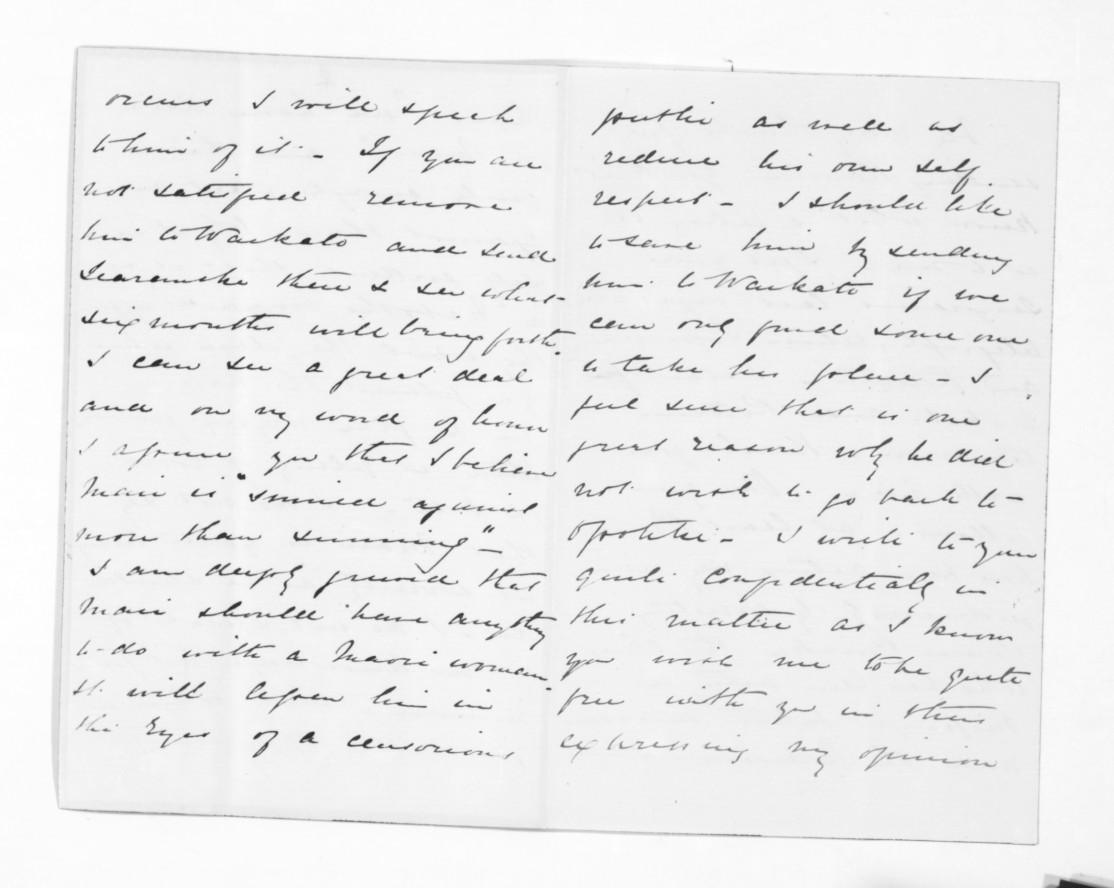 occurs I will speak
to him of it - If you are
not satisfied remove
him to Waikato and send
there & see what
six months will bring forth.
I can see a great deal
and on my word of honor
I assure you that I believe
Mair is "sinned against
more than sinning" -
I am deeply grieved that
Mair should have anything
to do with a Maori woman
it will lessen him in
the Eyes of a censorious
public as well as
reduce his own self
respect - I should like
to save him by sending
him to Waikato if we
can only find some one
to take his place - I
feel sure that is one
great reason why he did
not wish to go back to
Opotiki - I write to you
quite confidentially in
this matter as I know
you wish me to be quite
free with you in thus
expressing my opinion